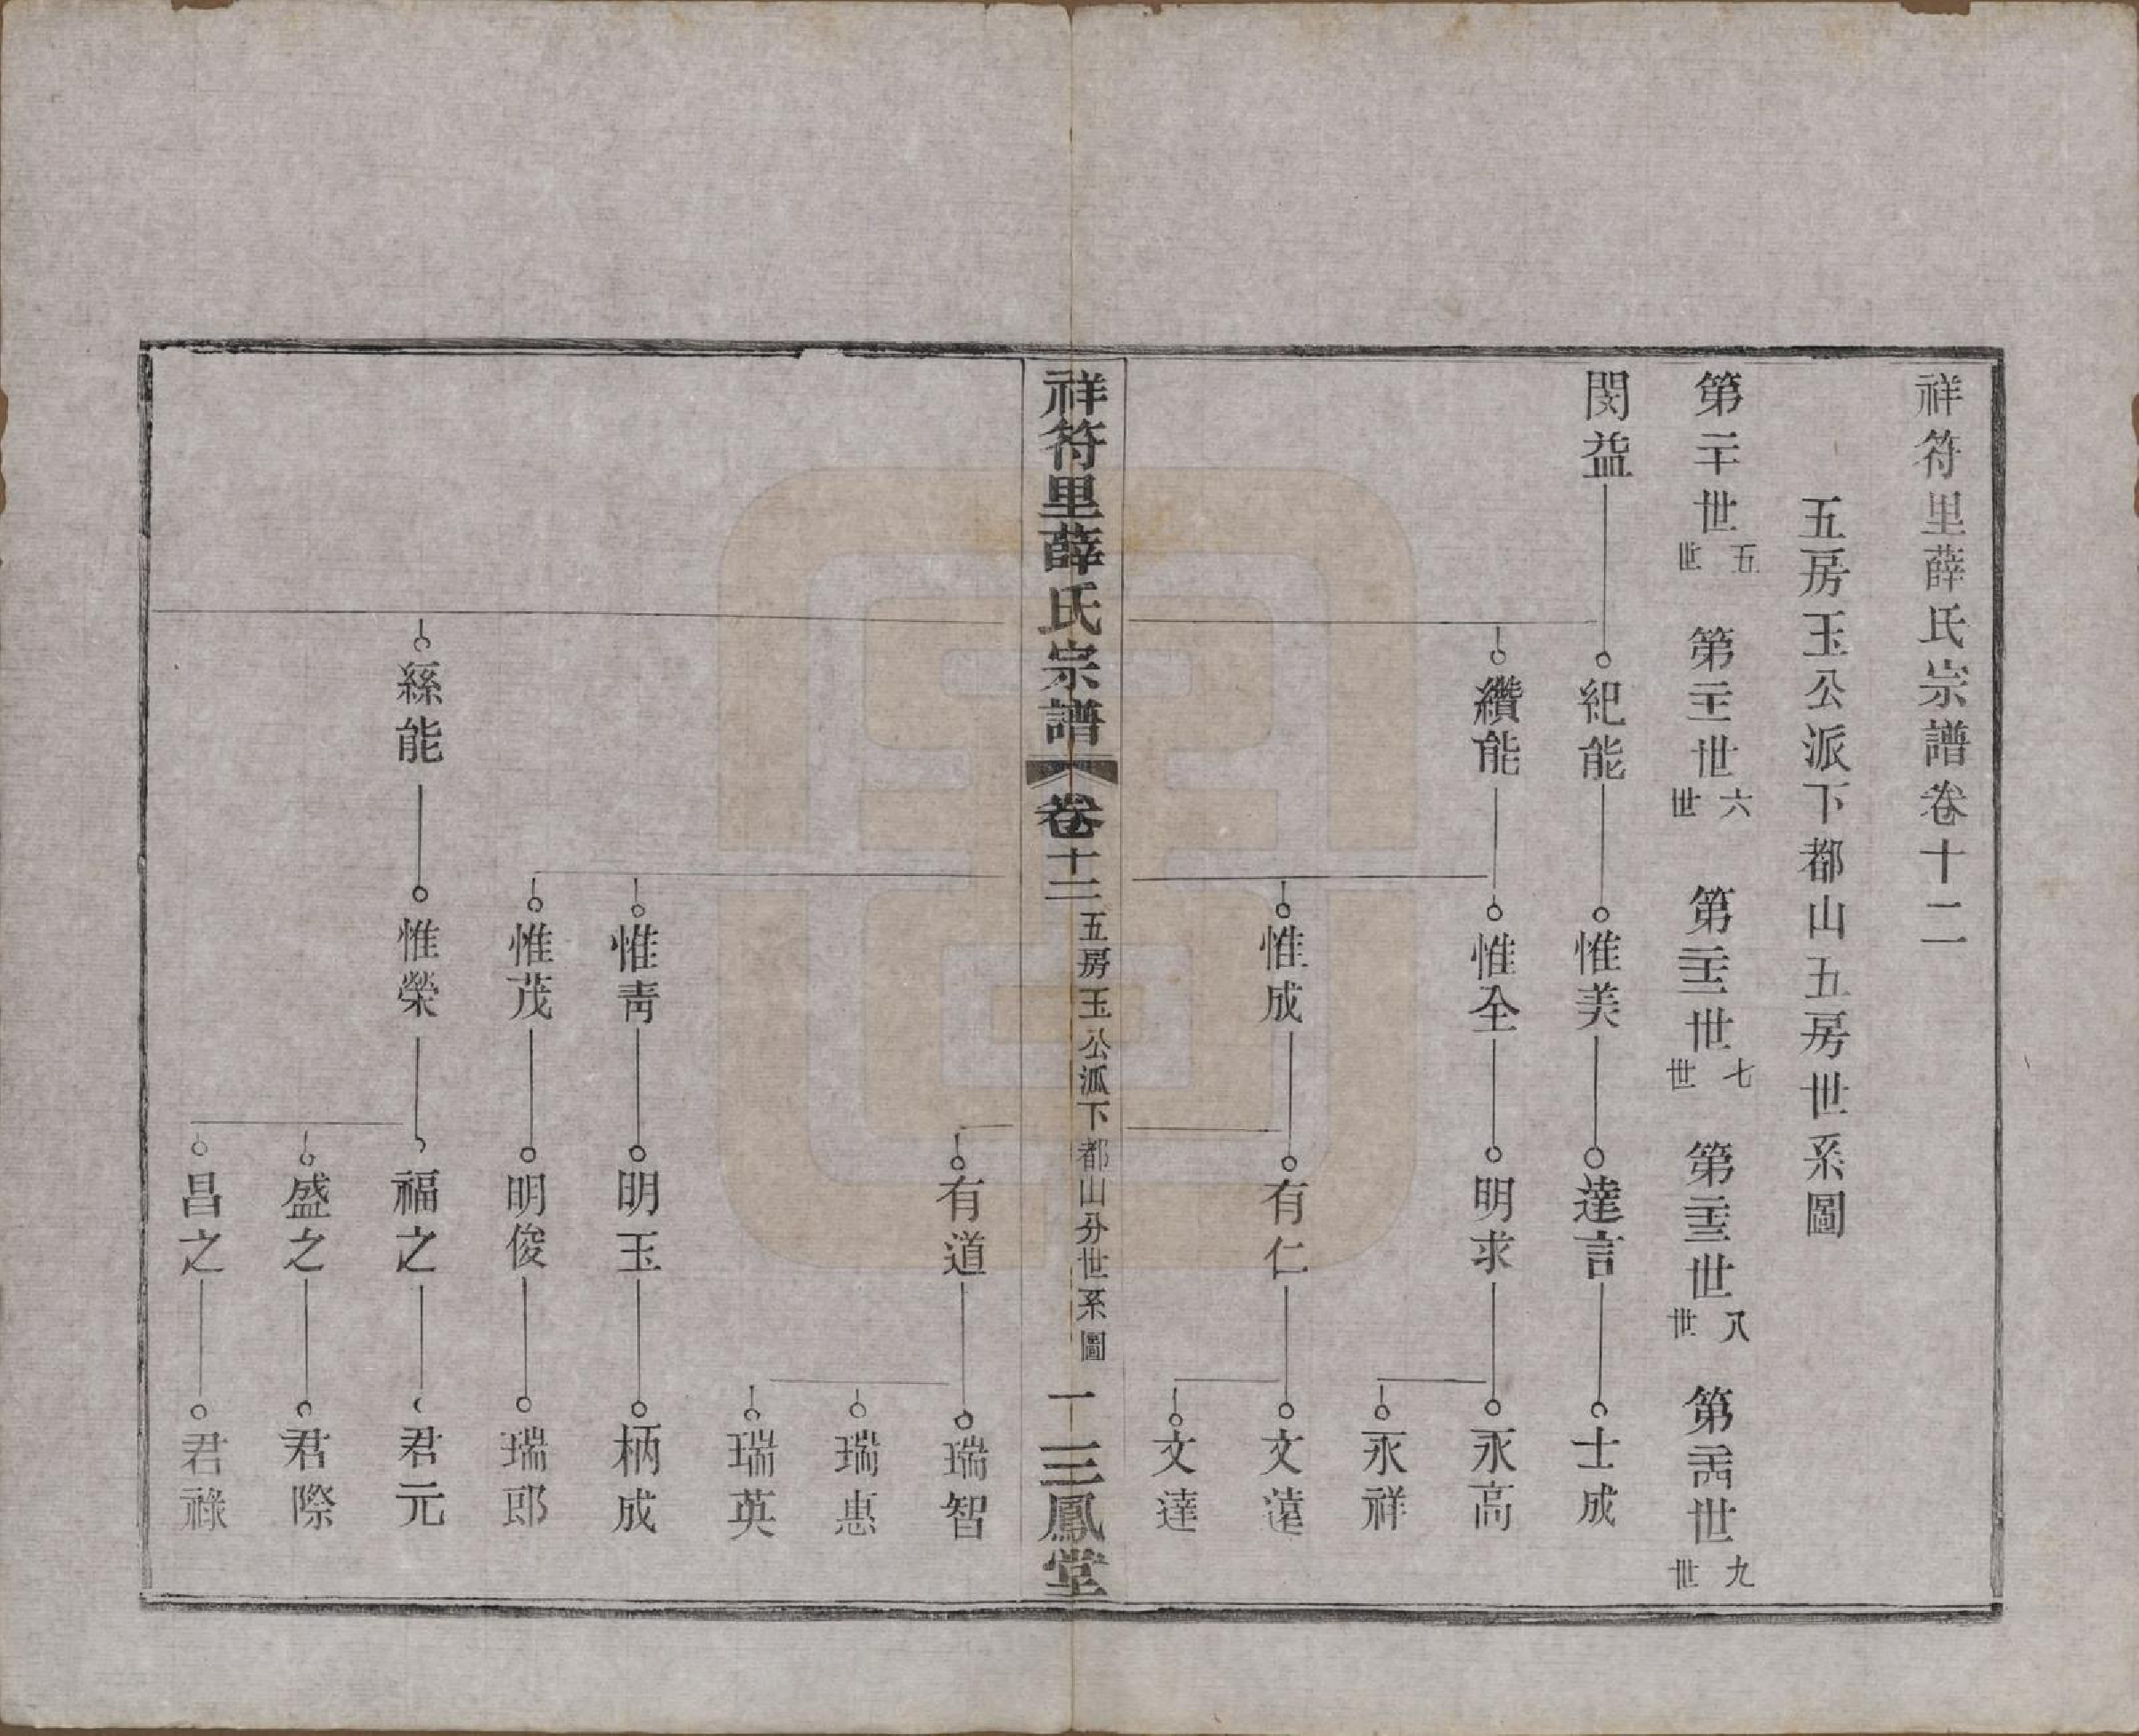 祥符里薛氏宗譜卷十二
五房玉公派下都山五房世系圖
第二十世 五世
第二十一世 六世
第二十二世 七世
第二十三世 八世
第二十四世 九世
閔益
紀能
惟美
達言
士成
纘能
惟全
明求
永高
永祥
惟成
有仁
文遠
文達
祥符里薛氏宗譜 卷十二 五房玉公派下都山分世系圖 一 三鳳堂
有道
瑞智
瑞惠
瑞英
惟靑
明玉
柄成
惟茂
明俊
瑞郎
絲能
惟榮
福之
君元
盛之
君際
昌之
君祿